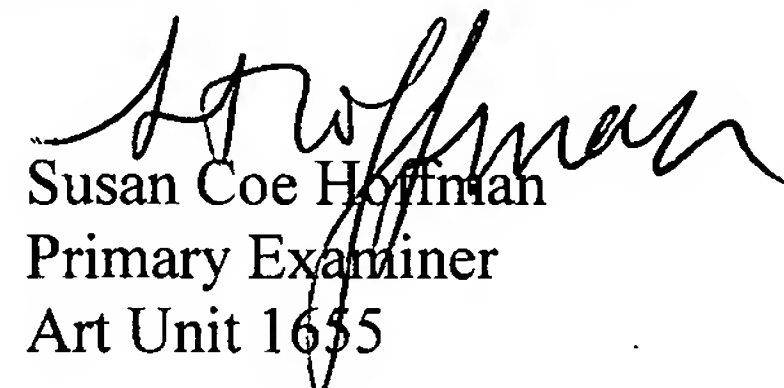 S Hoffman
Susan Coe Hoffman
Primary Examiner
Art Unit 1655